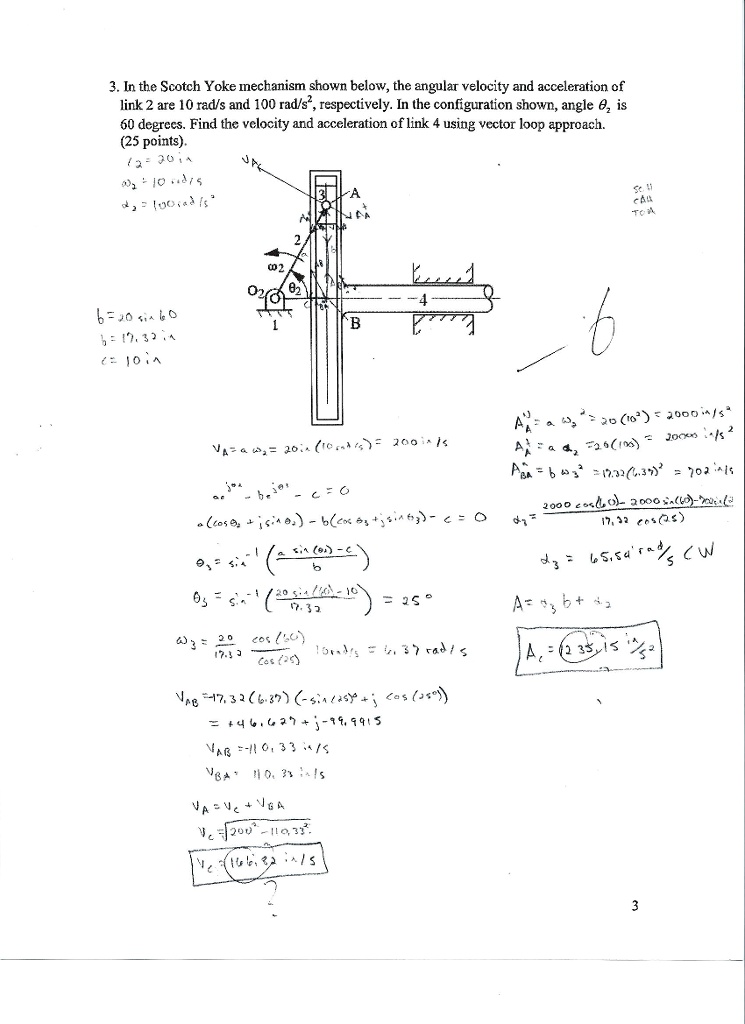 3. In the Scotch Yoke mechanism shown below, the angular velocity and acceleration of
link 2 are 10 rad/s and 100 rad/s², respectively. In the configuration shown, angle θ₂ is
60 degrees. Find the velocity and acceleration of link 4 using vector loop approach.
(25 points).
l₂ = 20 in
ω₂ = 10 rad/s
α₂ = 100 rad/s²
3
A
2
ω2
θ2
O2
1
B
4
-6
b = 20 sin 60
b = 17.32 in
c = 10 in
V_A = a ω₂ = 20in (10 rad/s) = 200 in/s
ae^jθ₂ - be^jθ₃ - c = 0
a(cosθ₂ + j sinθ₂) - b(cosθ₃ + j sinθ₃) - c = 0
θ₃ = sin⁻¹ (a sin(θ₂) - c / b)
θ₃ = sin⁻¹ (20 sin(60) - 10 / 17.32) = 25°
ω₃ = 20/17.32 cos(60)/cos(25) 10rad/s = 6.37 rad/s
V_AB = 17.32(6.37)(-sin(25)° + j cos(25°))
= +46.627 + j-99.9915
V_AB = -110.33 in/s
V_BA = 110.33 in/s
V_A = V_c + V_BA
V_c = √200² - 110.33²
V_c = 166.82 in/s
?
a ω₂² = 20(10²) = 2000 in/s²
a α₂ = 20(100) = 2000 in/s²
b ω₃² = 17.32(6.37)² = 702 in/s
α₃ = 65.54 rad/s CW
A = α₃b + α₂
3